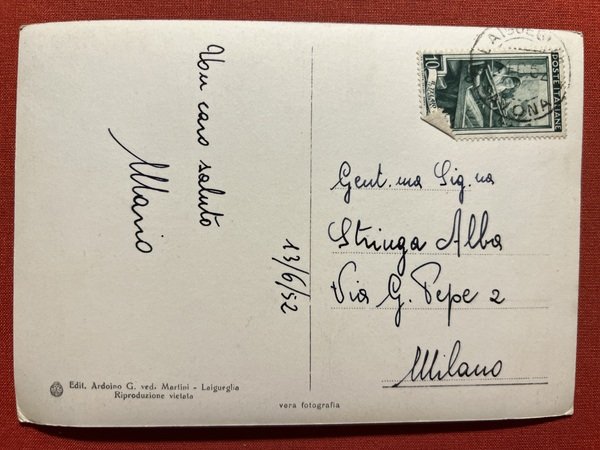 Un caro saluto
Mario
13/6/52
Gent.ma Sig.na
Stringa Alba
Via G. Pepe 2
Milano
10
POSTE ITALIANE
Edit. Ardoino G. ved. Martini - Laigueglia
Riproduzione vietata
vera fotografia